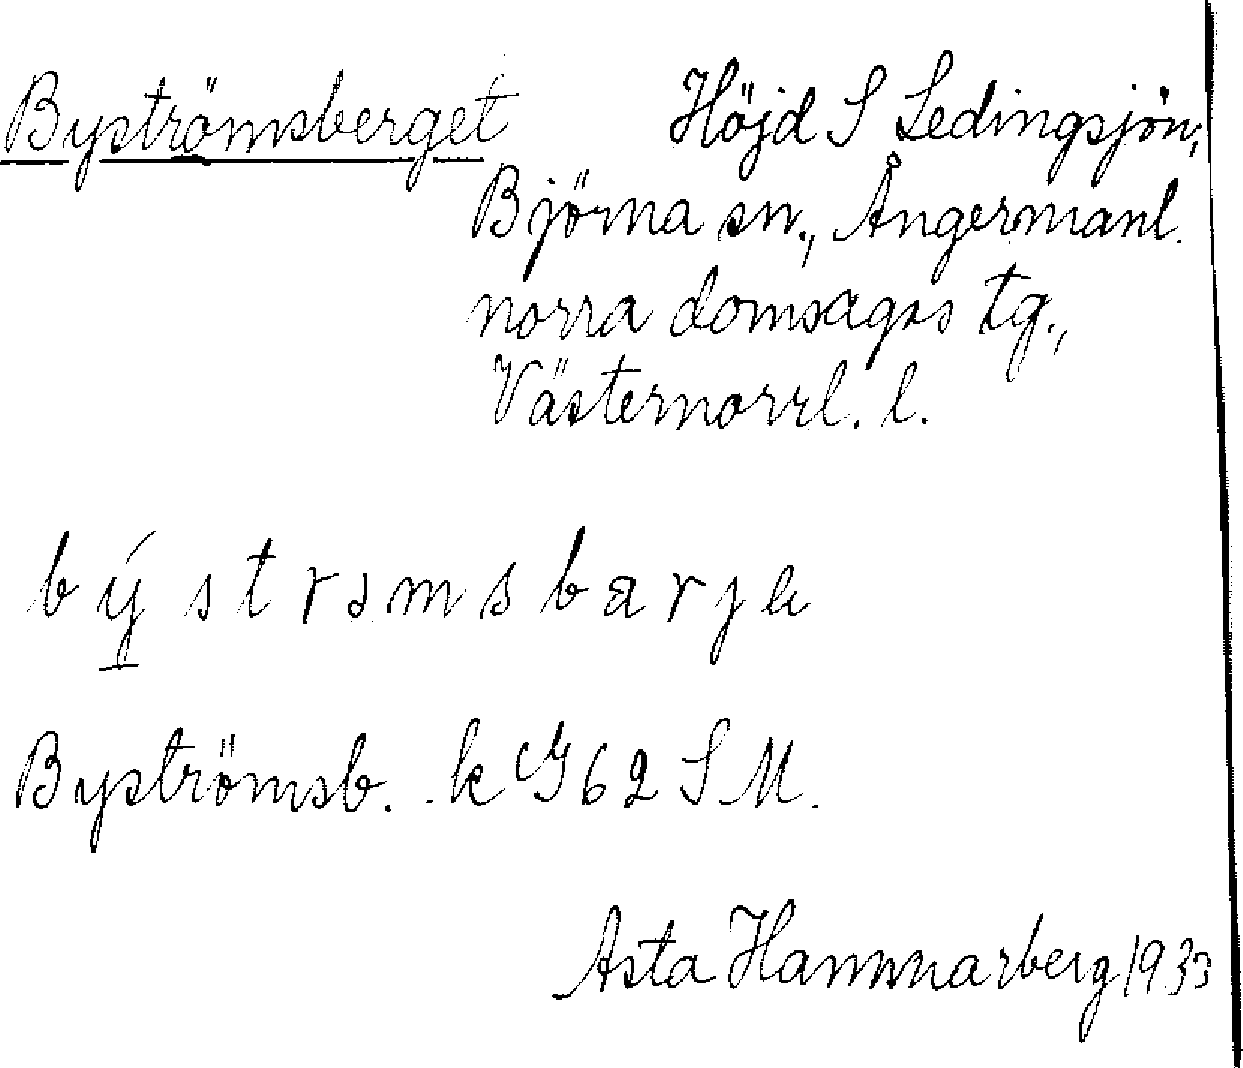 Byströmsberget Höjd S Ledingsjön,
Björna sn., Ångermanl.
norra domsagas tg.,
Västernorrl. l.
býstrɔmsbarjɐ
Byströmsb. k G 62 S M.
Asta Hammarberg 1933